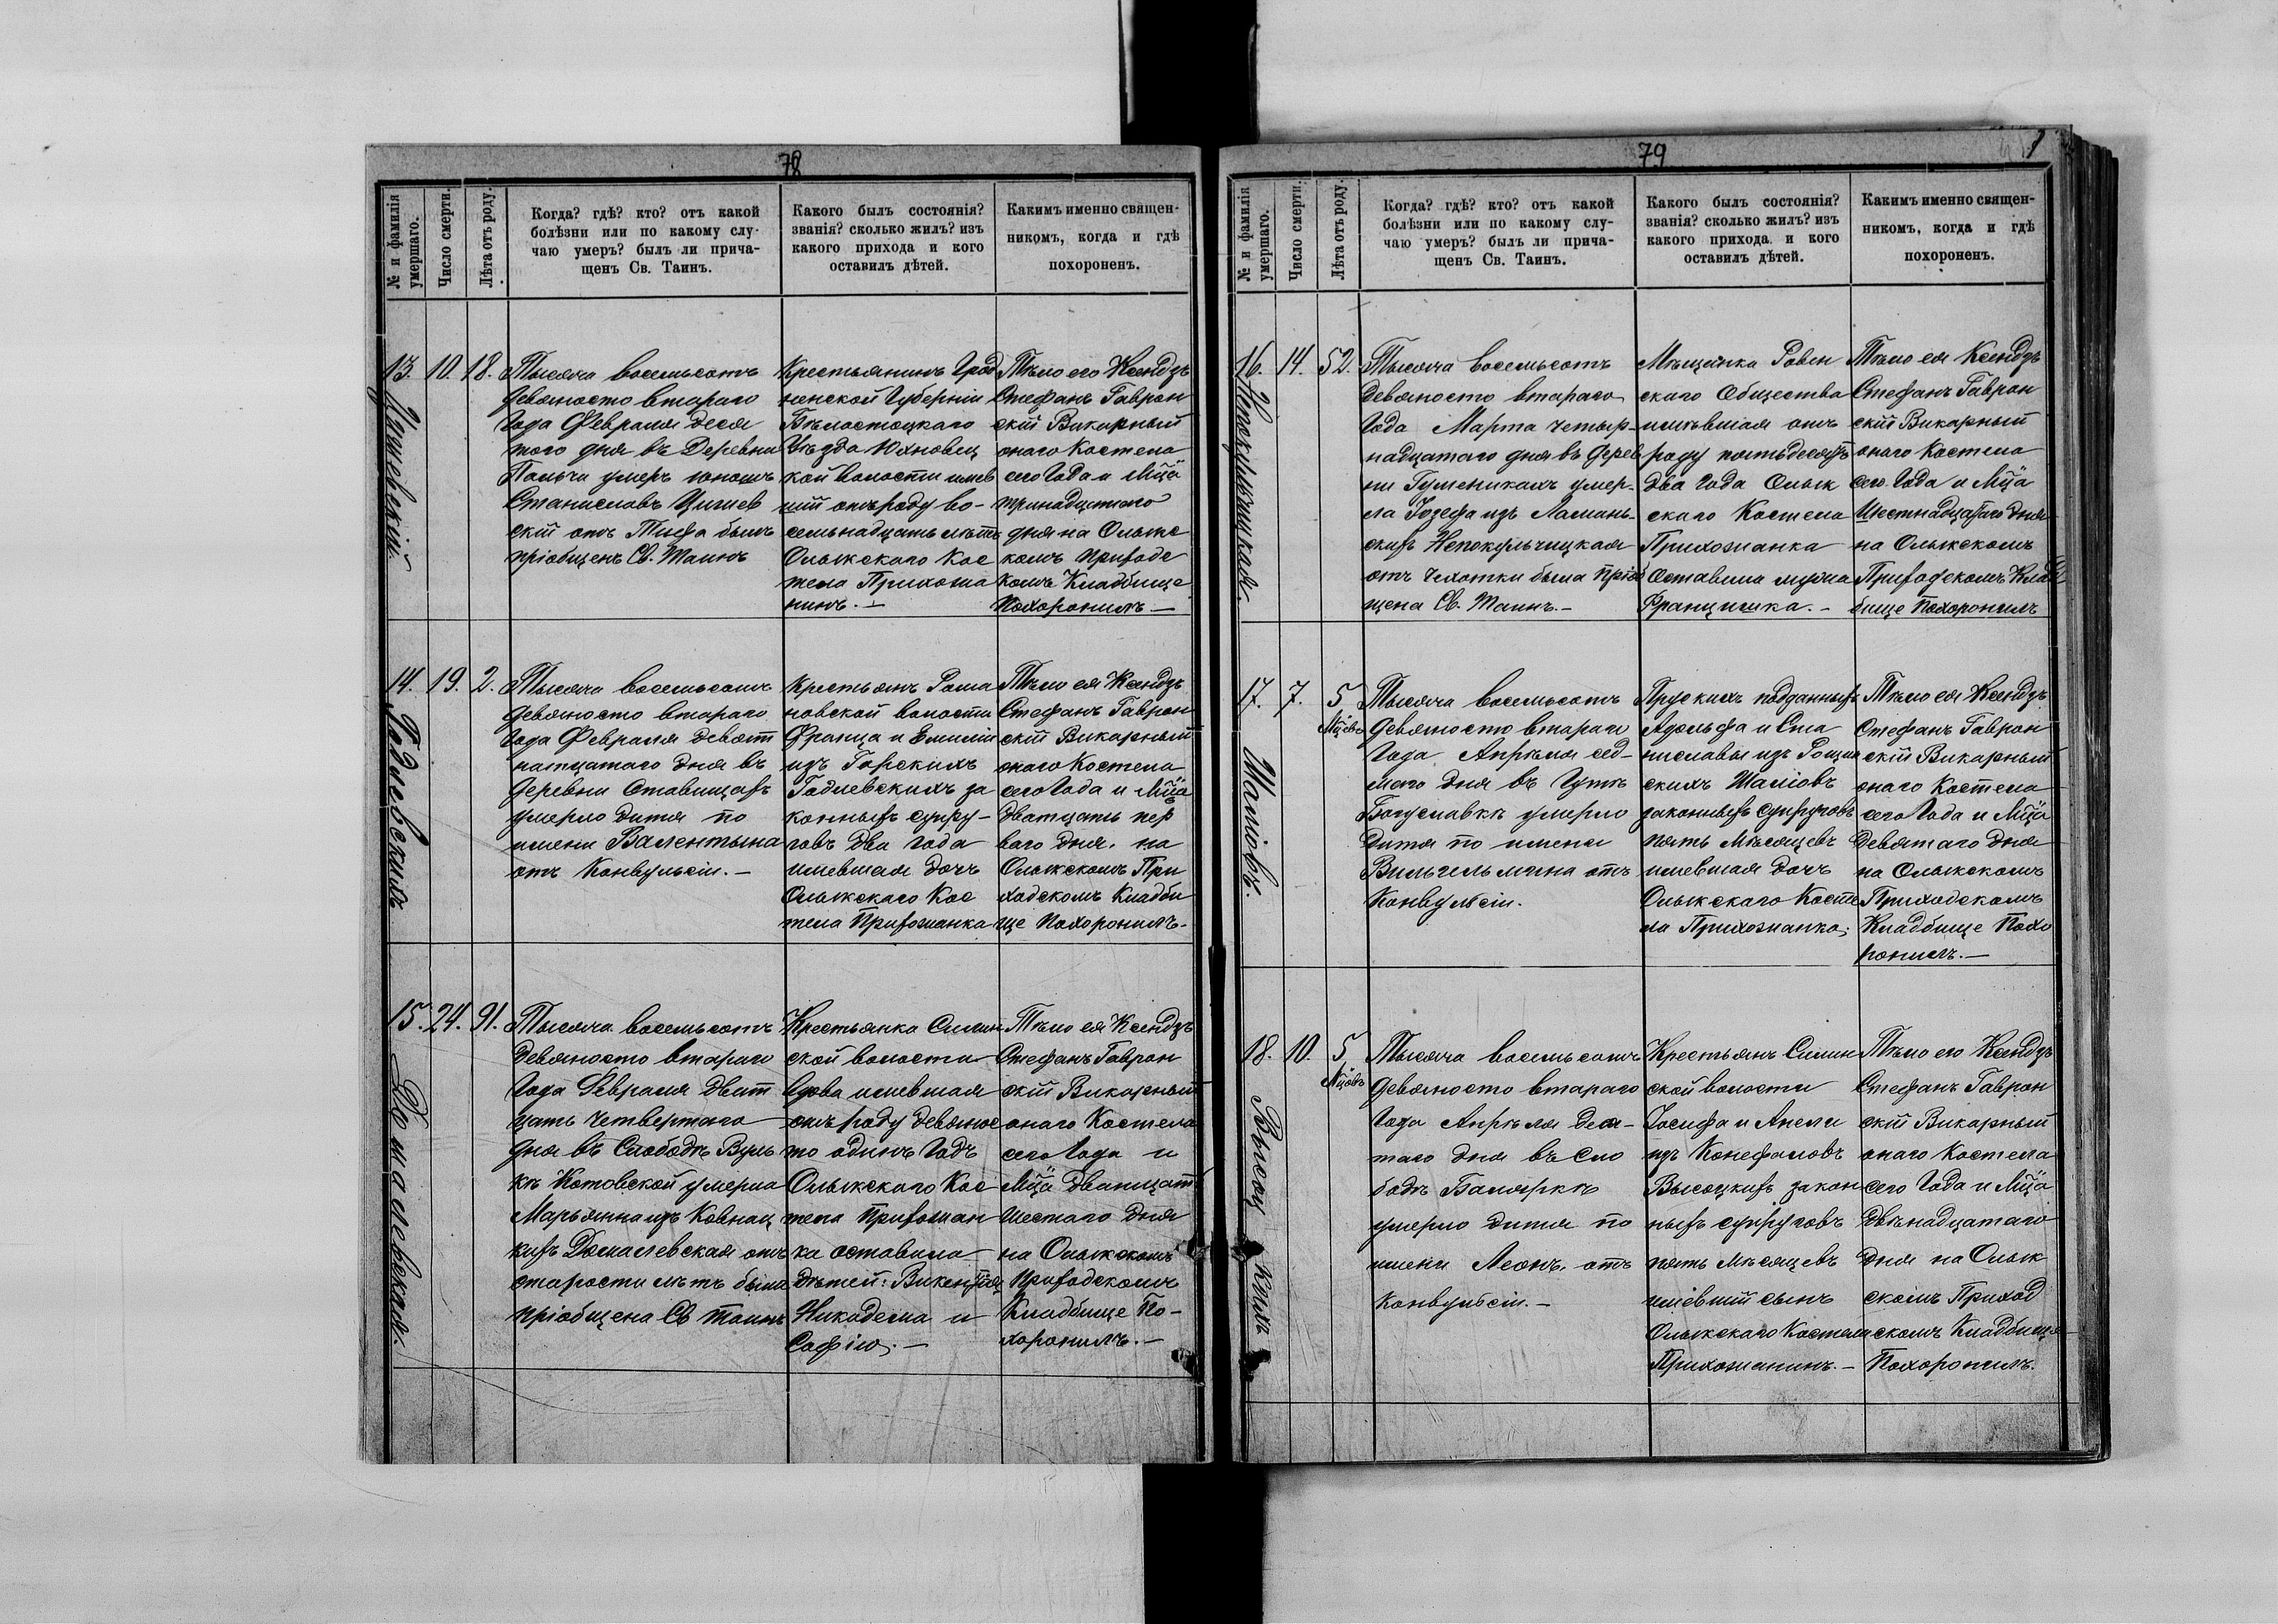 78
№ и фамилія умершаго.
Число смерти.
Лѣта отъ роду.
Когда? гдѣ? кто? отъ какой
болѣзни или по какому слу-
чаю умеръ? былъ ли прича-
щенъ Св. Таинъ.
Какого былъ состоянія?
званія? сколько жилъ? изъ
какого прихода и кого
оставилъ дѣтей.
Какимъ именно священ-
никомъ, когда и гдѣ
похороненъ.
13.
10.
18.
Тысяча восемьсотъ
девяносто втораго
Года Февраля деся
того дня въ Деревни
умеръ юношъ
Станиславъ
скій отъ Тифа былъ
пріобщенъ Св. Таинъ
Крестьянинъ Грод
ненской Губерніи
Бѣлостоцкаго
Уѣзда Юхновец
кой волости имев
шій отъ роду во-
семьнадцать лѣтъ
Олыкскаго Кос
тела Прихожа
нинъ. —
Тѣло его Ксендзъ
Стефанъ Гаврон
скій Викарный
онаго Костела
сего Года и Мца
тринадцатого
дня на Олыкс
комъ Приходс
комъ Кладбище
Похоронилъ —
14.
Гадлевскихъ
19.
2.
Тысяча восемьсотъ
девяносто втораго
Года Февраля девят
натцатаго дня въ
деревни Ставищахъ
умерло дитя по
имени Валентына
отъ Конвульсіи. —
Крестьянъ Рома
новской волости
Франца и Емиліи
изъ Горскихъ
Гадлевскихъ за
конныхъ супру-
говъ два года
имевшая дочь
Олыкскаго Кос
тела Прихожанка
Тѣло ея Ксендзъ
Стефанъ Гаврон
скій Викарный
онаго Костела
сего Года и Мца
Дватцать пер
ваго дня. на
Олыкскомъ При
ходскомъ Кладби
ще Похоронилъ. —
15.
Домалевская.
24.
91.
Тысяча восемьсотъ
девяносто втораго
Года Февраля Дват
цать четвертаго
дня въ Слободѣ Вуль
кѣ Котовской умерла
Марьянна изъ Ковнац
кихъ Домалевская отъ
старости лѣтъ была
пріобщена Св Таинъ
Крестьянка Силин
ской волости
вдова имевшая
отъ роду девянос
то одинъ Годъ
Олыкскаго Кос
тела Прихожан
ка оставила
дѣтей: Викентія,
Никадема и
Софію. —
Тѣло ея Ксендзъ
Стефанъ Гаврон
скій Викарный
онаго Костела
сего Года и
Мца Дватцать
шестаго дня
на Олыкскомъ
Приходскомъ
Кладбище По-
хоронилъ. —
79
№ и фамилія умершаго.
Число смерти.
Лѣта отъ роду.
Когда? гдѣ? кто? отъ какой
болѣзни или по какому слу-
чаю умеръ? былъ ли прича-
щенъ Св. Таинъ.
Какого былъ состоянія?
званія? сколько жилъ? изъ
какого прихода и кого
оставилъ дѣтей.
Какимъ именно священ-
никомъ, когда и гдѣ
похороненъ.
16.
Непокульчицкая.
14.
52.
Тысяча восемьсотъ
девяносто втораго
Года Марта четыр-
надцатаго дня въ дерев
ни Гуменикахъ умер-
ла Іозефа изъ Ломань-
скихъ Непокульчицкая
отъ чехотки была пріоб
щена Св. Таинъ. —
Мѣщанка Ровен
скаго Общества
имѣвшая отъ
роду пятьдесятъ
два Года Олык
скаго Костела
Прихожанка
Оставила мужа
Францишка. —
Тѣло ея Ксендзъ
Стефанъ Гаврон
скій Викарный
онаго Костела
сего Года и Мца
Шестнадцатаго дня
на Олыкскомъ
Приходскомъ Клад
бище Похоронилъ
17.
Шаліовъ.
7.
5
Мцевъ
Тысяча восемьсотъ
девяносто втораго
Года Апрѣля сед-
маго дня въ Гутѣ
Богуславкѣ умерло
дитя по имени
Вильгельмина отъ
Конвульсіи.
Прускихъ подданныхъ
Адольфа и Ста
ниславы изъ
скихъ Шаліовъ
законныхъ супруговъ
пять Мѣсяцевъ
имевшая дочь
Олыкскаго Косте
ла Прихожанка;
Тѣло ея Ксендзъ
Стефанъ Гаврон
скій Викарный
онаго Костела
сего Года и Мца
Девятаго дня
на Олыкскомъ
Приходскомъ
Кладбище Похо
ронилъ. —
18.
Высоцкихъ
10.
5
Мцовъ
Тысяча восемьсотъ
девяносто втораго
Года Апрѣля деся-
таго дня въ Сло
бодѣ Баляркѣ
умерло дитя по
имени Леонъ. отъ
Конвульсіи. —
Крестьянъ Силин
ской волости
Іосифа и Анели
изъ Конефаловъ
Высоцкихъ закон
ныхъ супруговъ
пять Мѣсяцевъ
имевшій сынъ
Олыкскаго Костела
Прихожанинъ. —
Тѣло его Ксендзъ
Стефанъ Гаврон
скій Викарный
онаго Костела
сего Года и Мца
Двѣнадцатаго
дня на Олык
скомъ Приход
скомъ Кладбище
Похоронилъ.